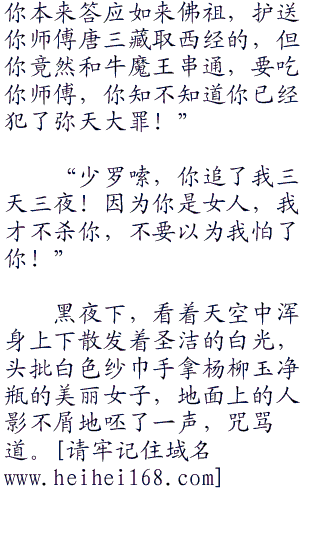 你本来答应如来佛祖，护送
你师傅唐三藏取西经的，但
你竟然和牛魔王串通，要吃
你师傅，你知不知道你已经
犯了弥天大罪！”
“少罗嗦，你追了我三
天三夜！因为你是女人，我
才不杀你，不要以为我怕了
你！”
黑夜下，看着天空中浑
身上下散发着圣洁的白光，
头批白色纱巾手拿杨柳玉净
瓶的美丽女子，地面上的人
影不屑地呸了一声，咒骂
道。[请牢记住域名
www.heihei168.com]